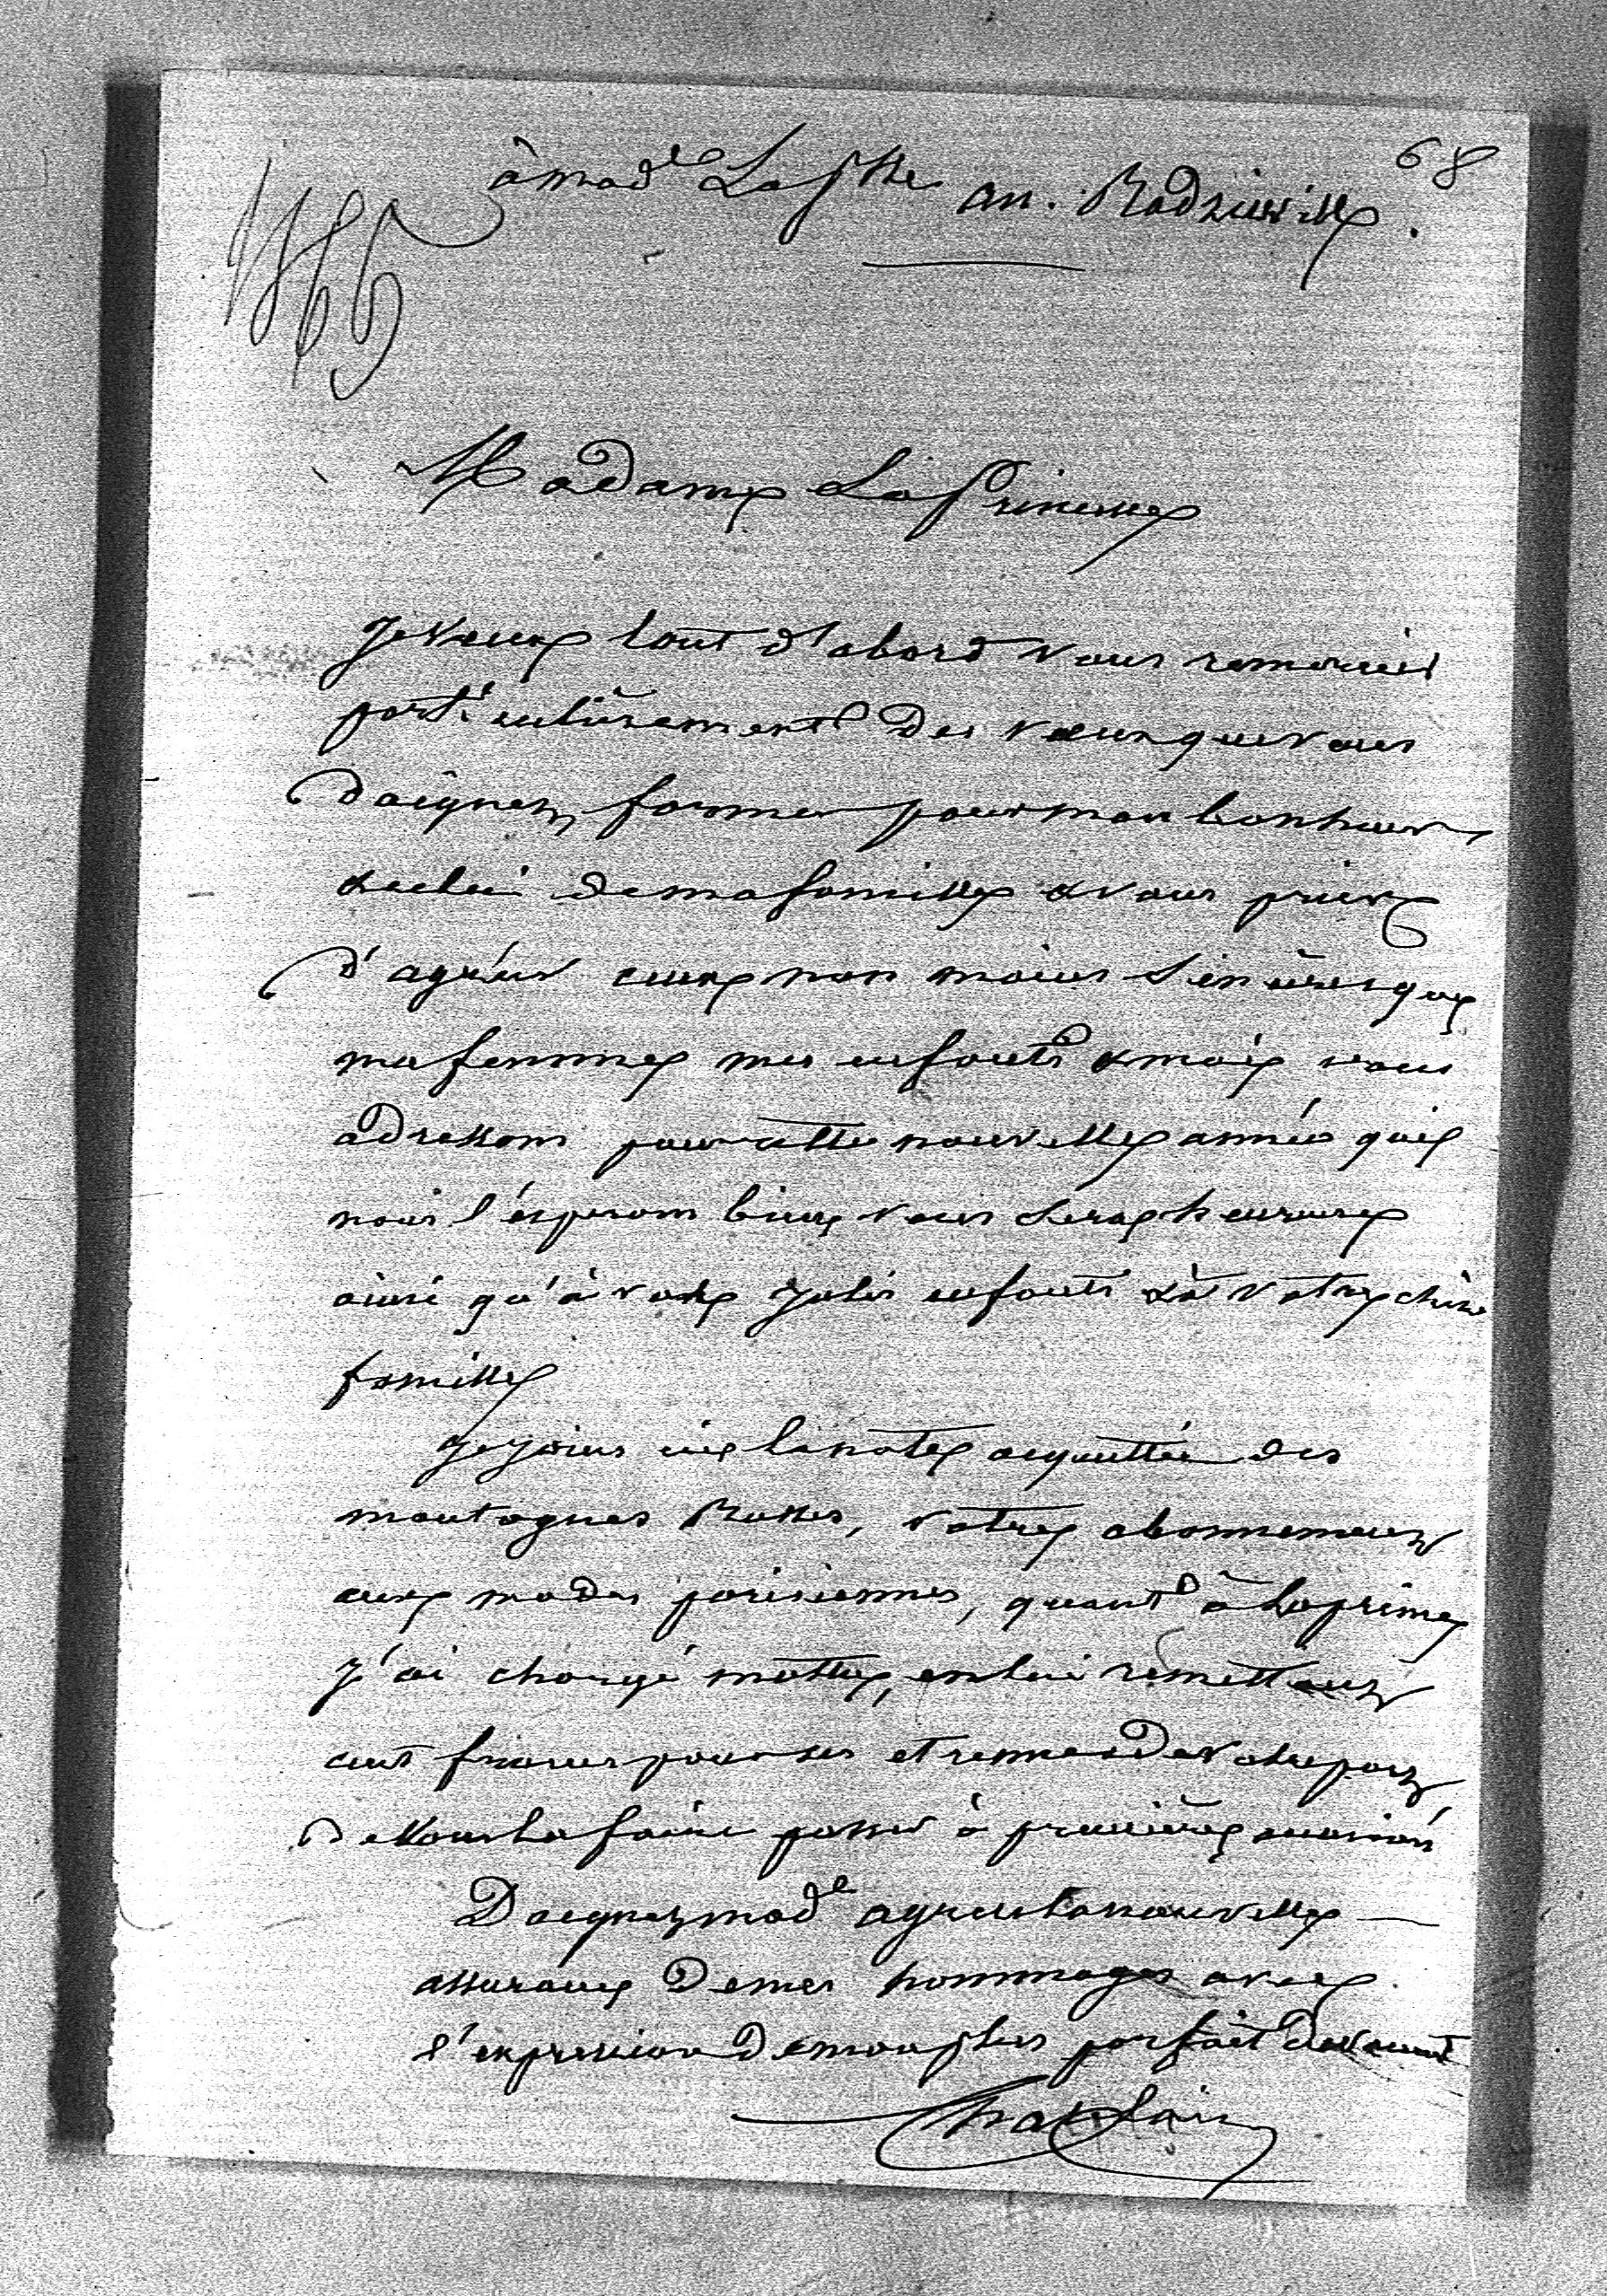 68
à mad^e La P^sse An. Radziwill.
1866
Madame La Princesse
Je veux tout d'abord vous remercier
particulièrement des vœux que vous
daignez former pour mon bonheur
& celui de ma famille & vous prier
d'agréer ceux non moins sincères que
ma femme mes enfants & moi vous
adressons pour cette nouvelle année qui
nous l'espérons bien vous sera heureuse
ainsi qu'à vos jolis enfants & à votre chère
famille
Je joins ici la note acquittée des
montagnes Russes, votre abonnement
aux modes parisiennes, quant à la prime
j'ai chargé en lui remettant
cent francs pour ses etrennes de votre part
de vous la faire passer à première occasion
Daignez mad^e agréer la nouvelle
assurance de mes hommages avec
l'expression de mon plus parfait dévouement